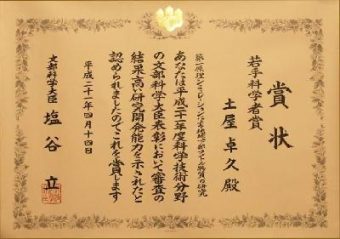 賞状
若手科学者賞
土屋卓久殿
第一原理シミュレーションによる地球
あなたは平成二十一年度科学技術分野
の文部科学大臣表彰において審査の
結果高い研究開発能力を示されたと
認められましたのでこれを賞します
平成二十一年四月十四日
文部科学大臣 塩谷立